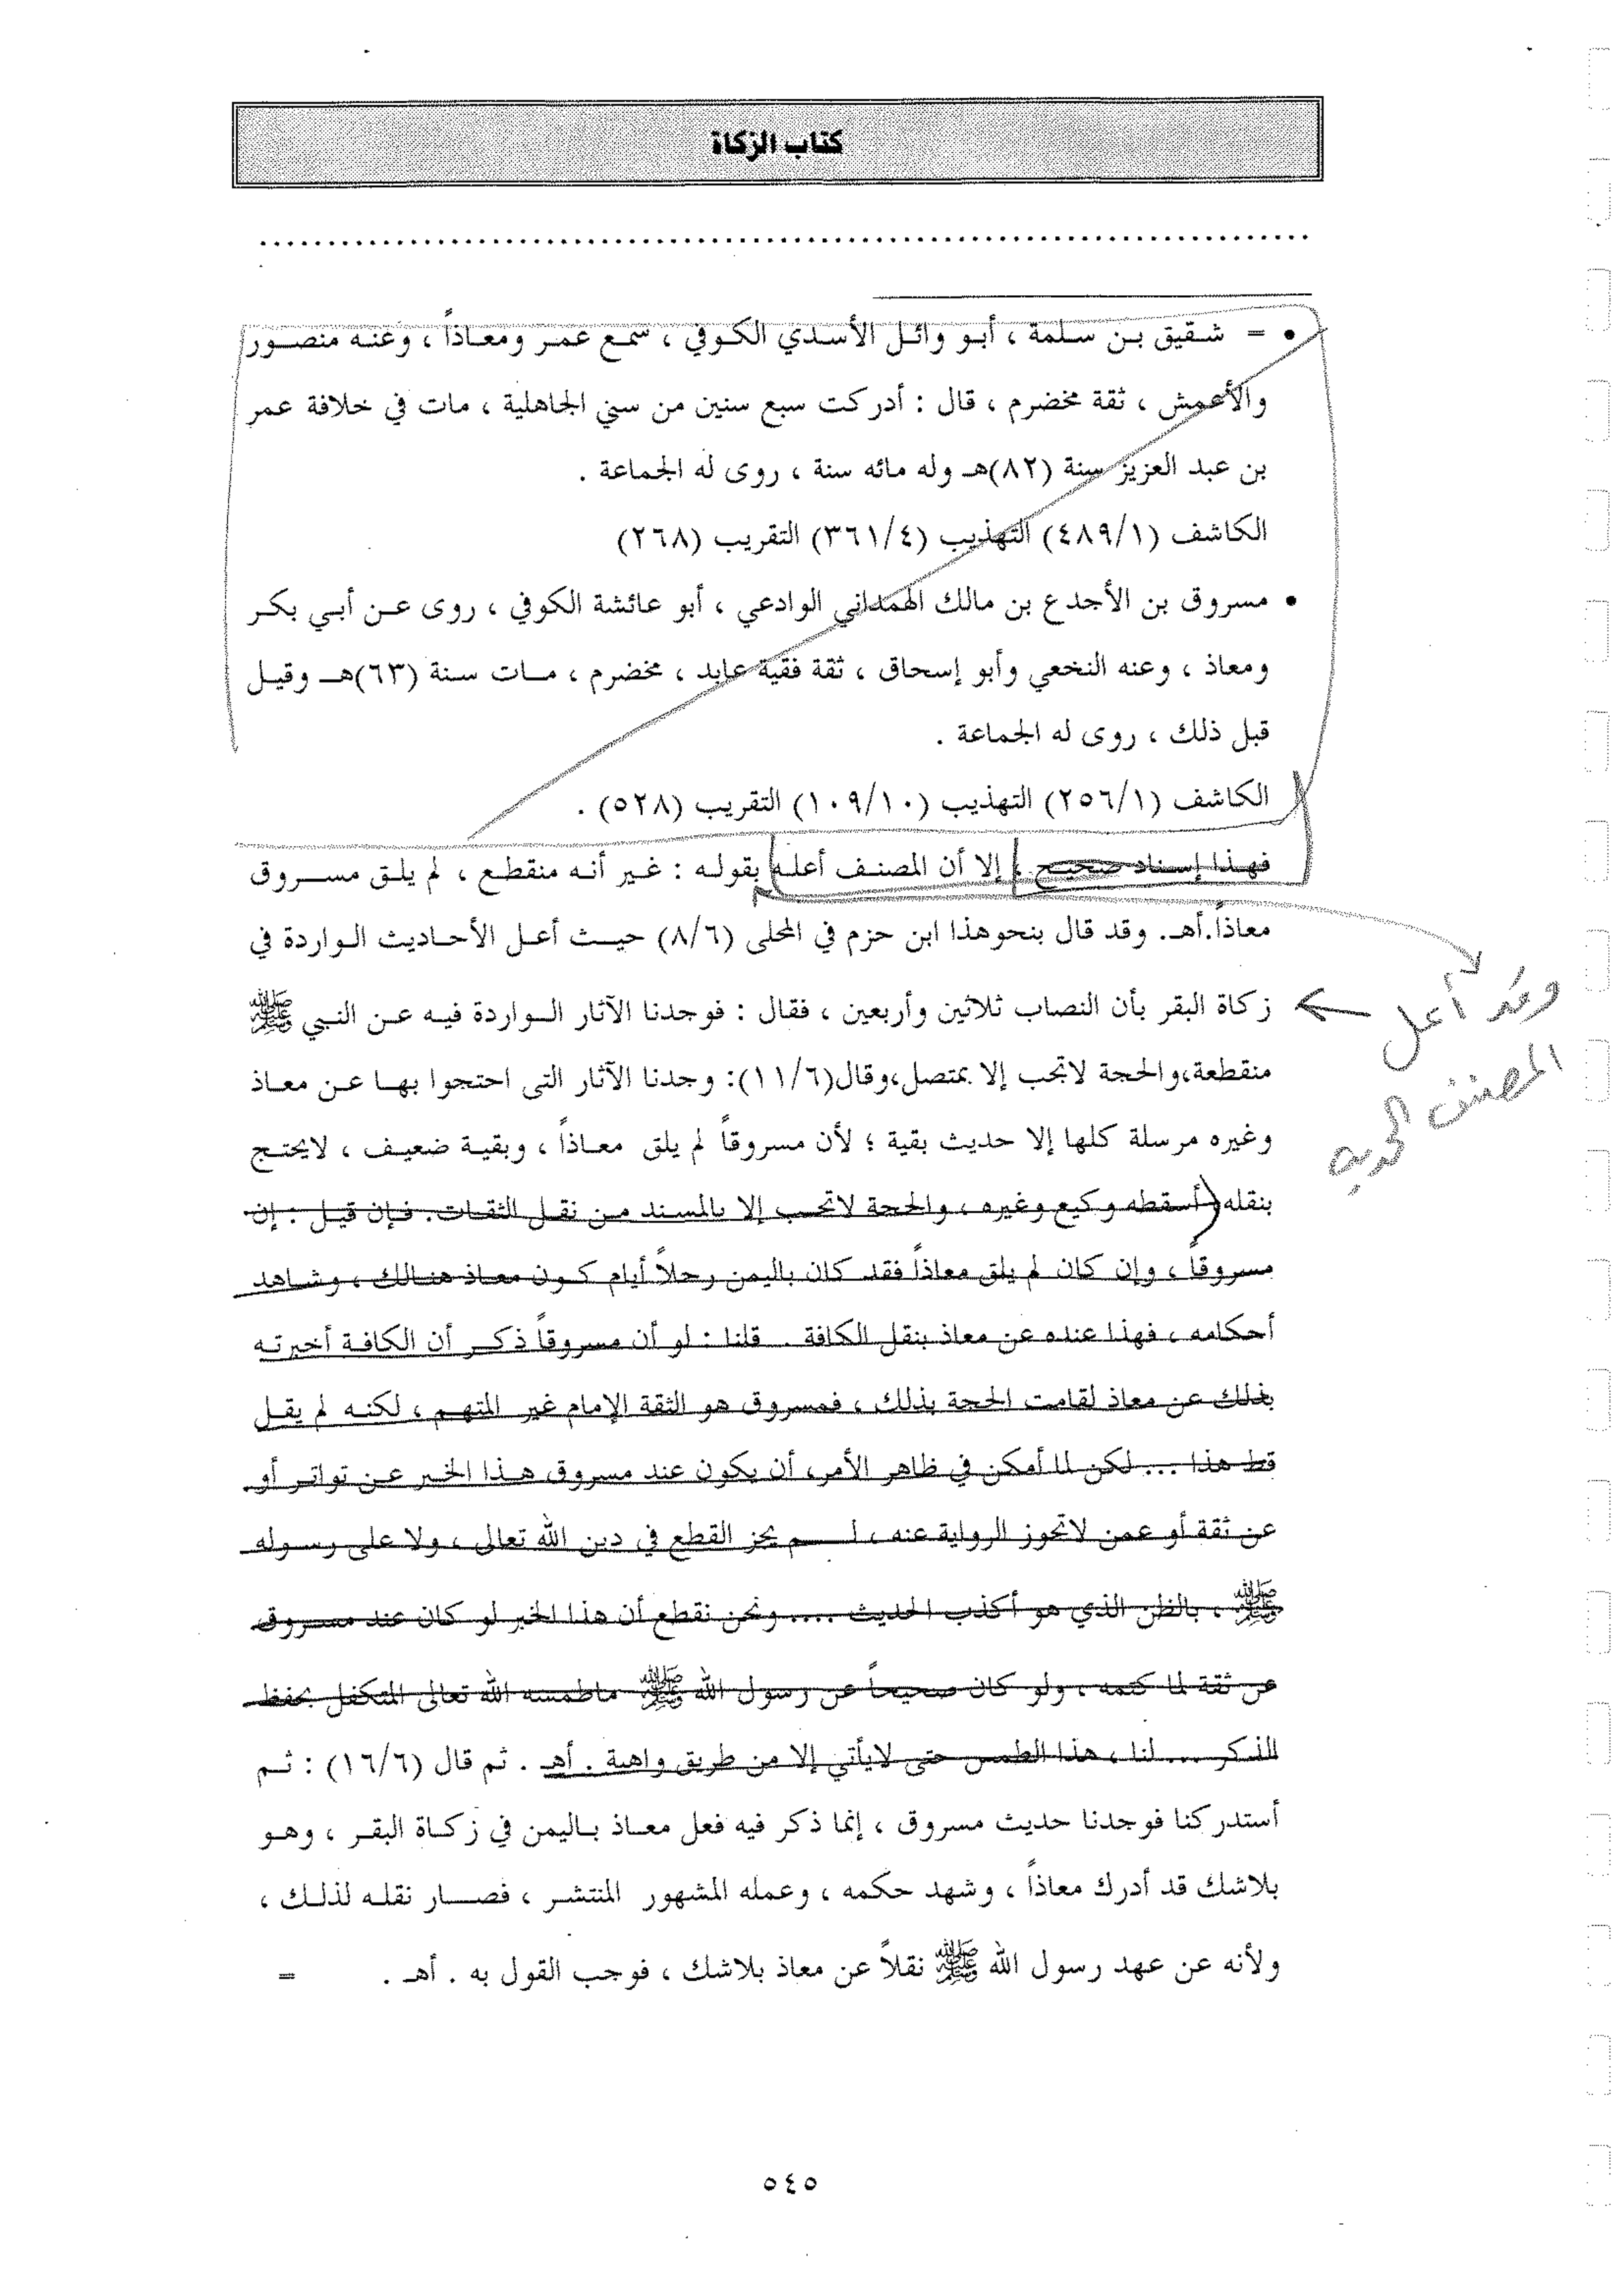 كتاب الزكاة
• = شقيق بن سلمة ، أبو وائل الأسدي الكوفي ، سمع عمر ومعاذاً ، وعنه منصور
والأعمش ، ثقة مخضرم ، قال : أدركت سبع سنين من سني الجاهلية ، مات في خلافة عمر
بن عبد العزيز سنة (٨٢)هـ وله مائه سنة ، روى له الجماعة .
الكاشف (٤٨٩/١) التهذيب (٣٦١/٤) التقريب (٢٦٨)
• مسروق بن الأجدع بن مالك الهمداني الوادعي ، أبو عائشة الكوفي ، روى عن أبي بكر
ومعاذ ، وعنه النخعي وأبو إسحاق ، ثقة فقية عابد ، مخضرم ، مات سنة (٦٣)هـ وقيل
قبل ذلك ، روى له الجماعة .
الكاشف (٢٥٦/١) التهذيب (١٠٩/١٠) التقريب (٥٢٨) .
فهذا إسناد صحيح ، إلا أن المصنف أعله بقوله : غير أنه منقطع ، لم يلق مسروق
معاذاً.أهـ. وقد قال بنحوهذا ابن حزم في المحلى (٨/٦) حيث أعل الأحاديث الواردة في
زكاة البقر بأن النصاب ثلاثين وأربعين ، فقال : فوجدنا الآثار الواردة فيه عن النبي ﷺ
وقد أعل
المصنف الحديث
منقطعة،والحجة لاتجب إلا بمتصل،وقال(١١/٦): وجدنا الآثار التى احتجوا بها عن معاذ
وغيره مرسلة كلها إلا حديث بقية ؛ لأن مسروقاً لم يلق معاذاً ، وبقية ضعيف ، لايحتج
بنقله (أسقطه وكيع وغيره ، والحجة لاتجب إلا بالمسند من نقل الثقات. فإن قيل : إن
مسروقاً ، وإن كان لم يلق معاذاً فقد كان باليمن رجلاً أيام كون معاذ هنالك ، وشاهد
أحكامه ، فهذا عنده عن معاذ بنقل الكافة . قلنا : لو أن مسروقاً ذكر أن الكافة أخبرته
بذلك عن معاذ لقامت الحجة بذلك ، فمسروق هو الثقة الإمام غير المتهم ، لكنه لم يقل
قط هذا ... لكن لما أمكن في ظاهر الأمر، أن يكون عند مسروق هذا الخبر عن تواتر أو
عن ثقة أو عمن لاتجوز الرواية عنه ، لم يجز القطع في دين الله تعالى ، ولا على رسوله
ﷺ ، بالظن الذي هو أكذب الحديث .... ونحن نقطع أن هذا الخبر لو كان عند مسروق
عن ثقة لما كتمه ، ولو كان صحيحاً عن رسول الله ﷺ ماطمسه الله تعالى المتكفل بحفظ
الذكر ... لنا ، هذا الطمس حتى لايأتي إلا من طريق واهية . أهـ . ثم قال (١٦/٦) : ثم
أستدركنا فوجدنا حديث مسروق ، إنما ذكر فيه فعل معاذ باليمن في زكاة البقر ، وهو
بلاشك قد أدرك معاذاً ، وشهد حكمه ، وعمله المشهور المنتشر ، فصار نقله لذلك ،
ولأنه عن عهد رسول الله ﷺ نقلاً عن معاذ بلاشك ، فوجب القول به . أهـ . =
٥٤٥